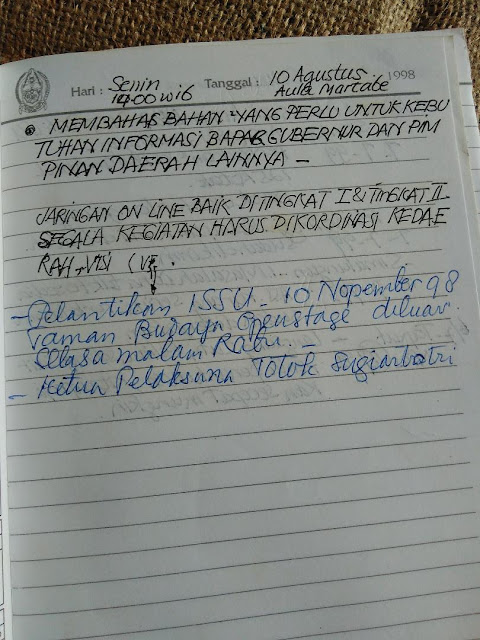 Hari : Senin Tanggal : 10 Agustus 1998
14.00 wib Aula Martate
MEMBAHAS BAHAN²YANG PERLU UNTUK KEBU
TUHAN INFORMASI BAPAK GUBERNUR DAN PIM
PINAN DAERAH LAINNYA –
JARINGAN ON LINE BAIK DITINGKAT I & TINGKAT II
SEGALA KEGIATAN HARUS DIKORDINASI KEDAE
RAH, VISI
- Pelantikan ISSU - 10 Nopember 98
Taman Budaya Openstage diluar
Selasa malam Rabu. -
- Ketua Pelaksana Totok Sugiarbatri